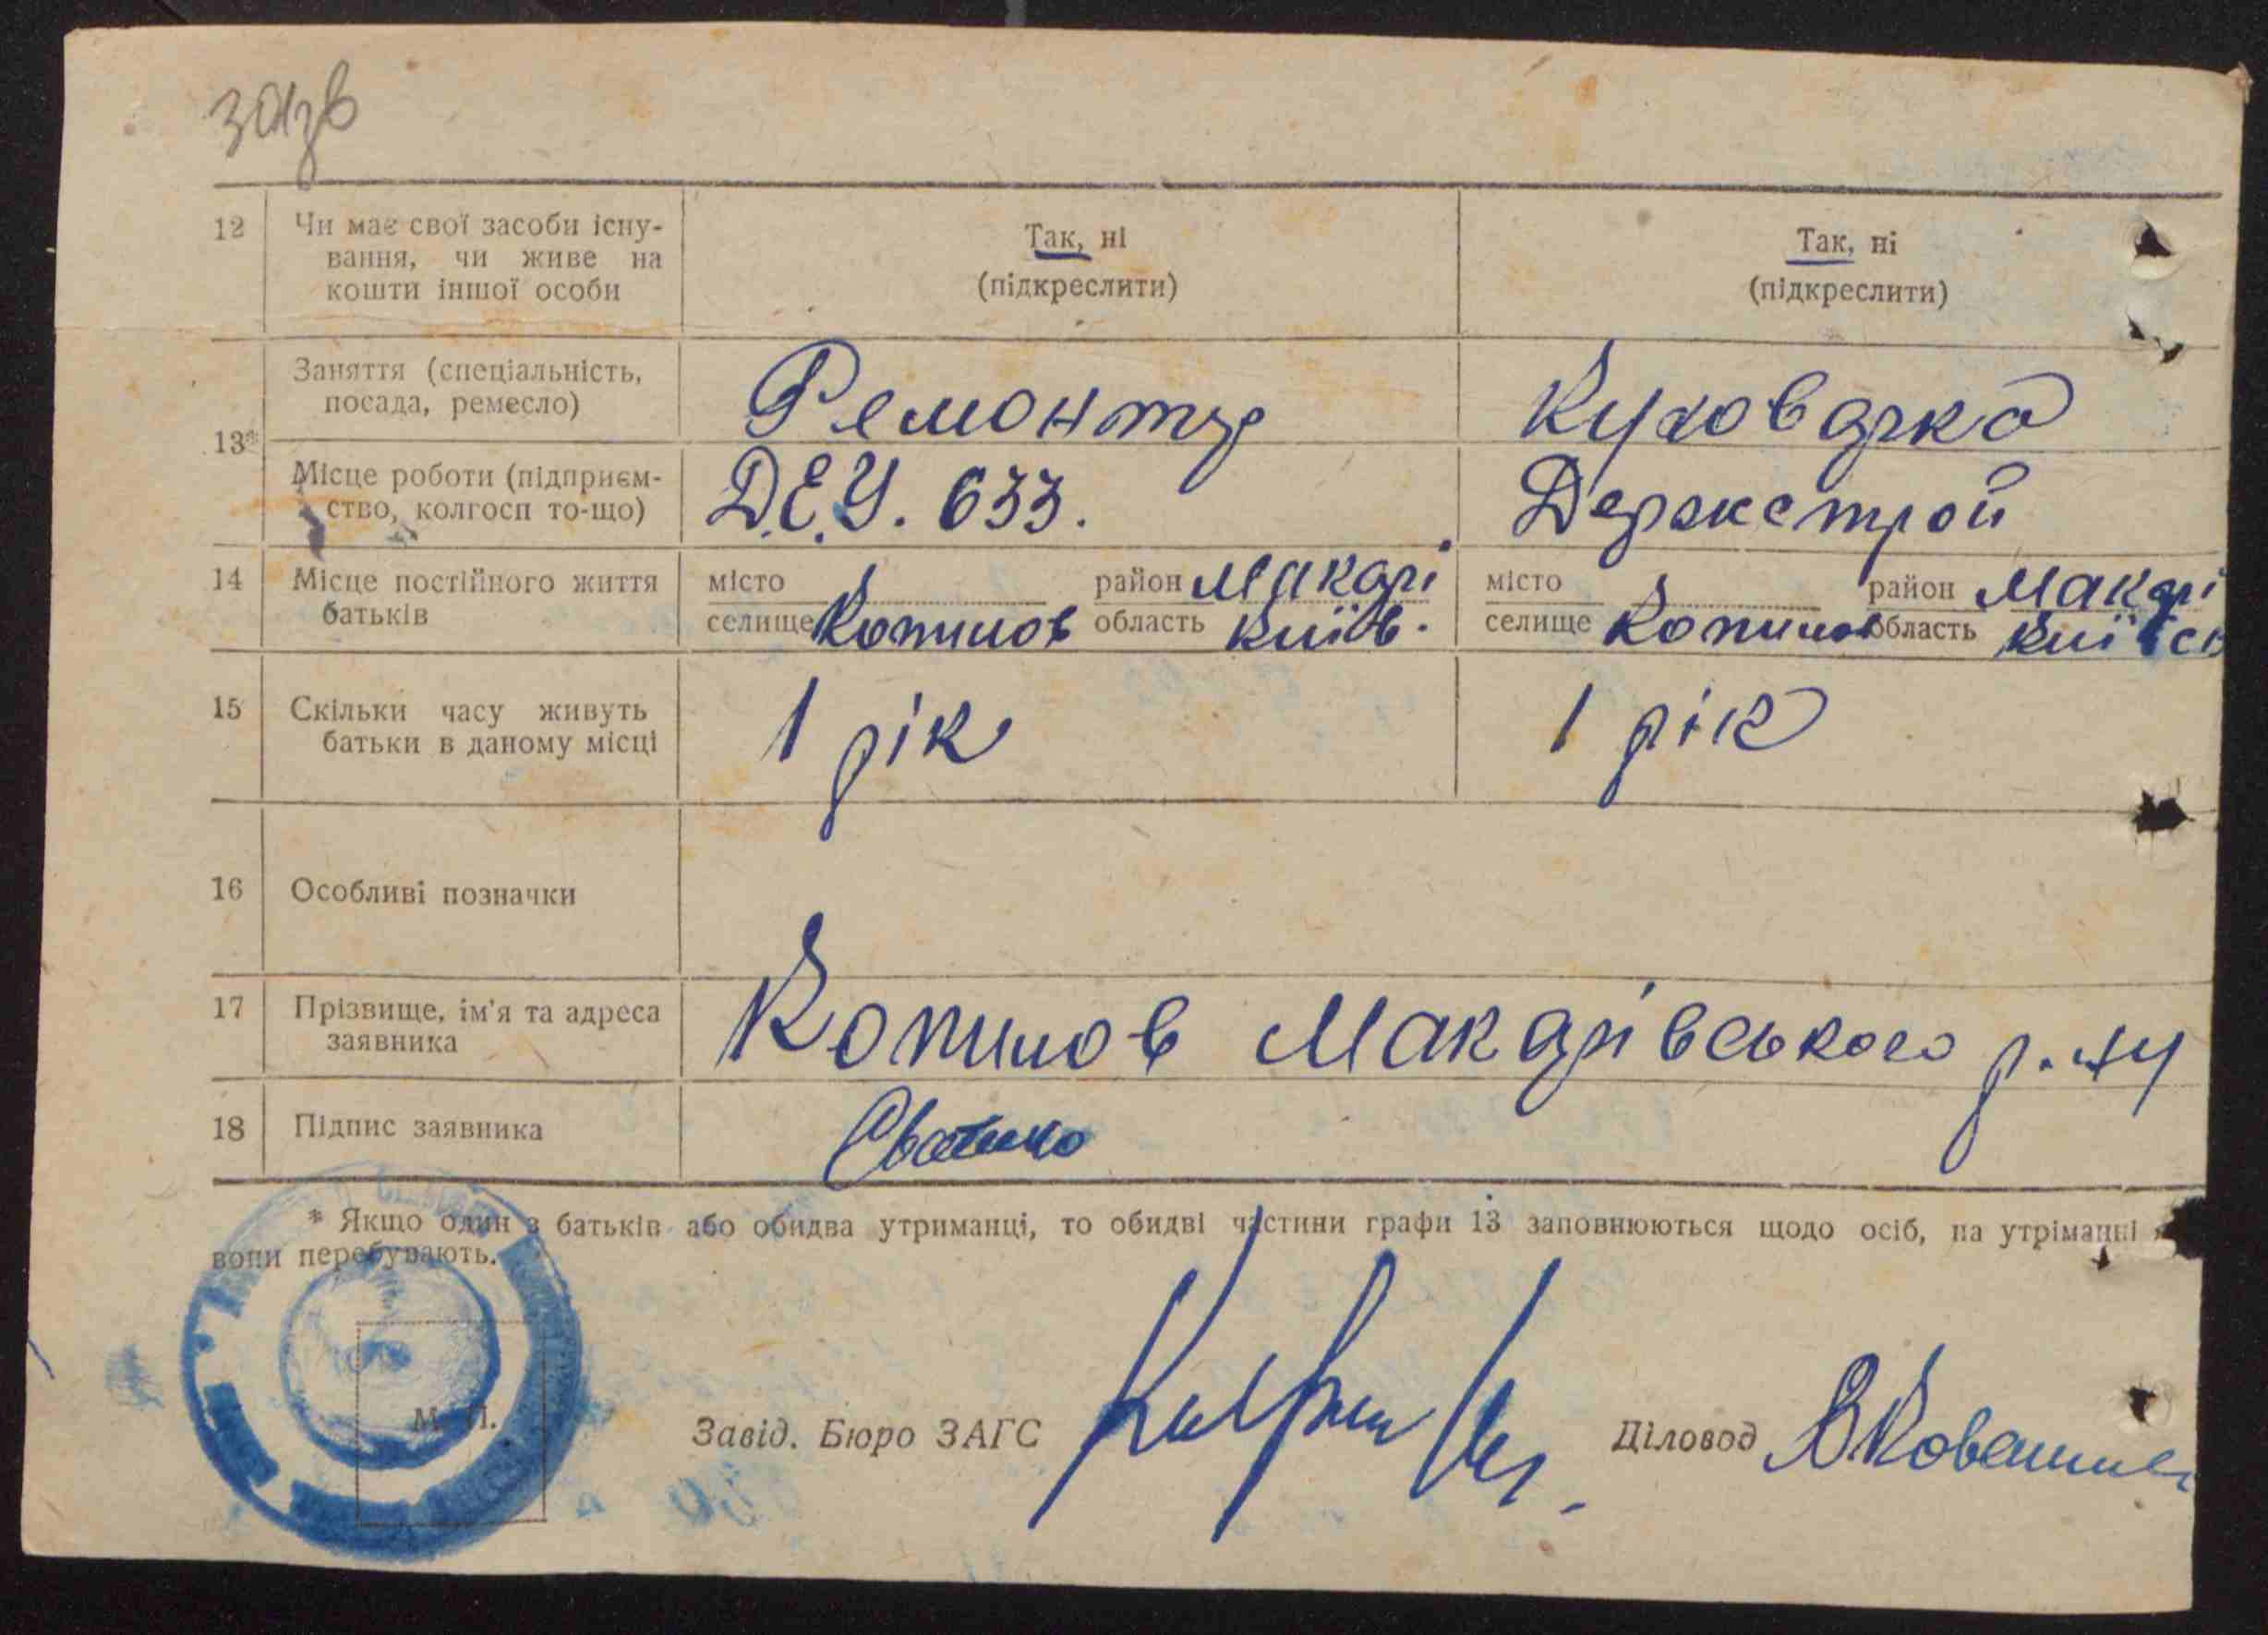 12 Чи має свої засоби існу-
вання, чи живе на
кошти іншої особи
Так, ні
(підкреслити)
Так, ні
(підкреслити)
13*
Заняття (спеціальність,
посада, ремесло)
Ремонтер
Куховарка
Місце роботи (підприєм-
ство, колгосп то-що)
Д.Е.У. 633.
Держстрой
14 Місце постійного життя
батьків
місто район Макарі
селище Копилов область Київ.
місто район Макарі
селище Копилов область
15 Скільки часу живуть
батьки в даному місці
1 рік
1 рік
16 Особливі позначки
17 Прізвище, ім'я та адреса
заявника
Копилов Макарівського р. ну
18 Підпис заявника
* Якщо один з батьків або обидва утриманці, то обидві частини графи 13 заповнюються щодо осіб, на утріманні
вони перебувають.
М. П.
Завід. Бюро ЗАГС
Діловод